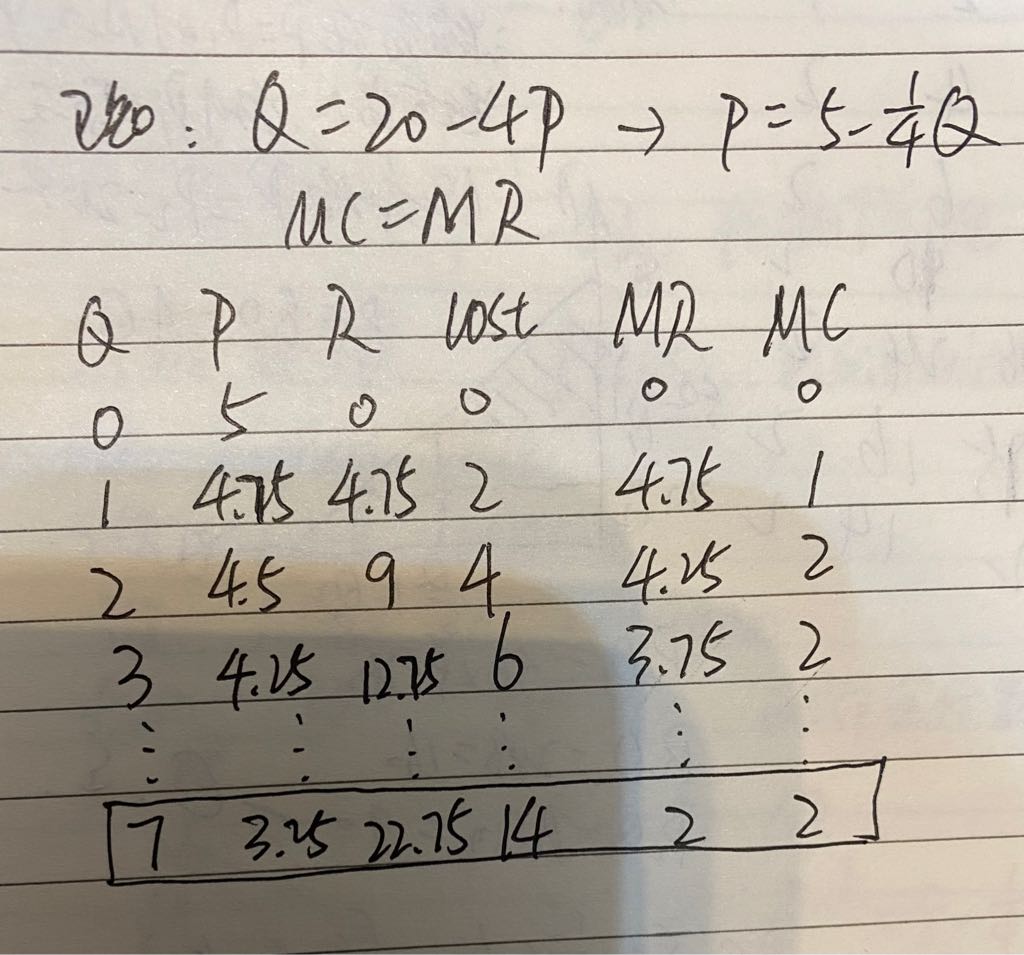 : Q = 20 - 4P → P = 5 - 1/4 Q
MC = MR
Q P R cost MR MC
0 5 0 0 0 0
1 4.75 4.75 2 4.75 1
2 4.5 9 4 4.25 2
3 4.25 12.75 6 3.75 2
⋮ ⋮ ⋮ ⋮ ⋮ ⋮
7 3.25 22.75 14 2 2